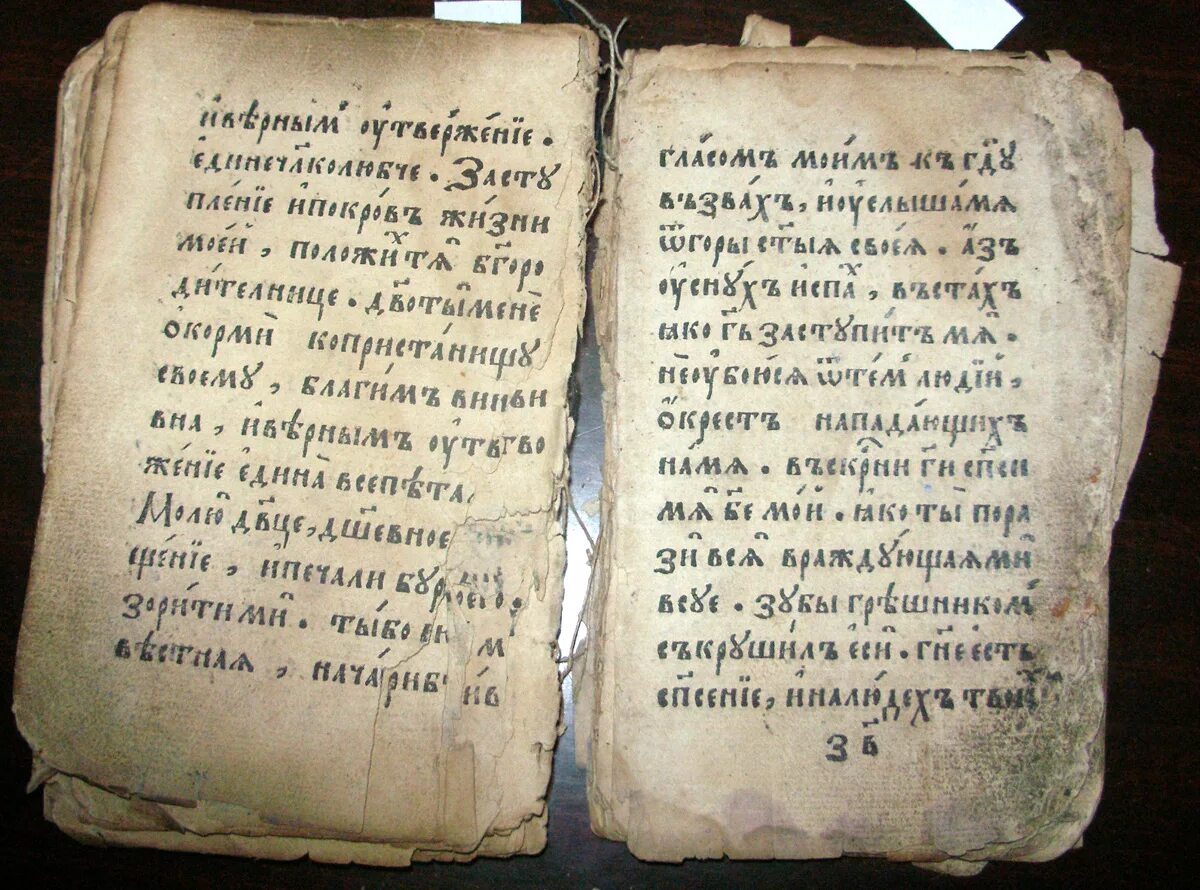 и҆вѣ́рным̾ оу҆твержє́нїе .
є҆ди́нечл҃коло́бче . Засту
пле́нїе и҆покро́въ жи́зни
моеѧ҆̀ , положи́хтѧ̀ бг҃оро
ди́телнице . дв҃оты̀менѐ
ѡ҆кормѝ копристанищу
своему , благи́мъ вины̀
вна , и҆вѣ́рнымъ оу҆тв
же́нїе є҆ди́на всепѣ́таѧ
Молю̀ дв҃це , дш҃евное
ще́нїе , и҆печа́ли
зори́тимѝ . ты́бо
вѣ́стнаѧ ,
гла́сомъ мои́мъ къ гдⷭ҇у
възва́хъ , и҆оу҆слы́шамѧ
ѿгоры ст҃ы́ѧ своеѧ̀ . а҆́зъ
оу҆сну́хъ и҆спа́х , въста́хъ
ꙗ҆́ко гд҇ь засту́питъ мѧ̀ .
нѐоу҆бою́сѧ ѿте́мъ люді́й ,
ѻ҆́крестъ напада́ющихъ
на́мѧ . въскрⷭ҇ни гд҇и сп҃си
мѧ̀ бж҃е мо́й . ꙗ҆́коты̀ пора
зѝ всѧ̀ вражду́ющаѧмѝ
всуе . зубы грѣ́шником̾
съкруши́лъ є҆сѝ . гд҇не є҆́сть
сп҃се́нїе , и҆налю́дехъ твои́х
з҃в